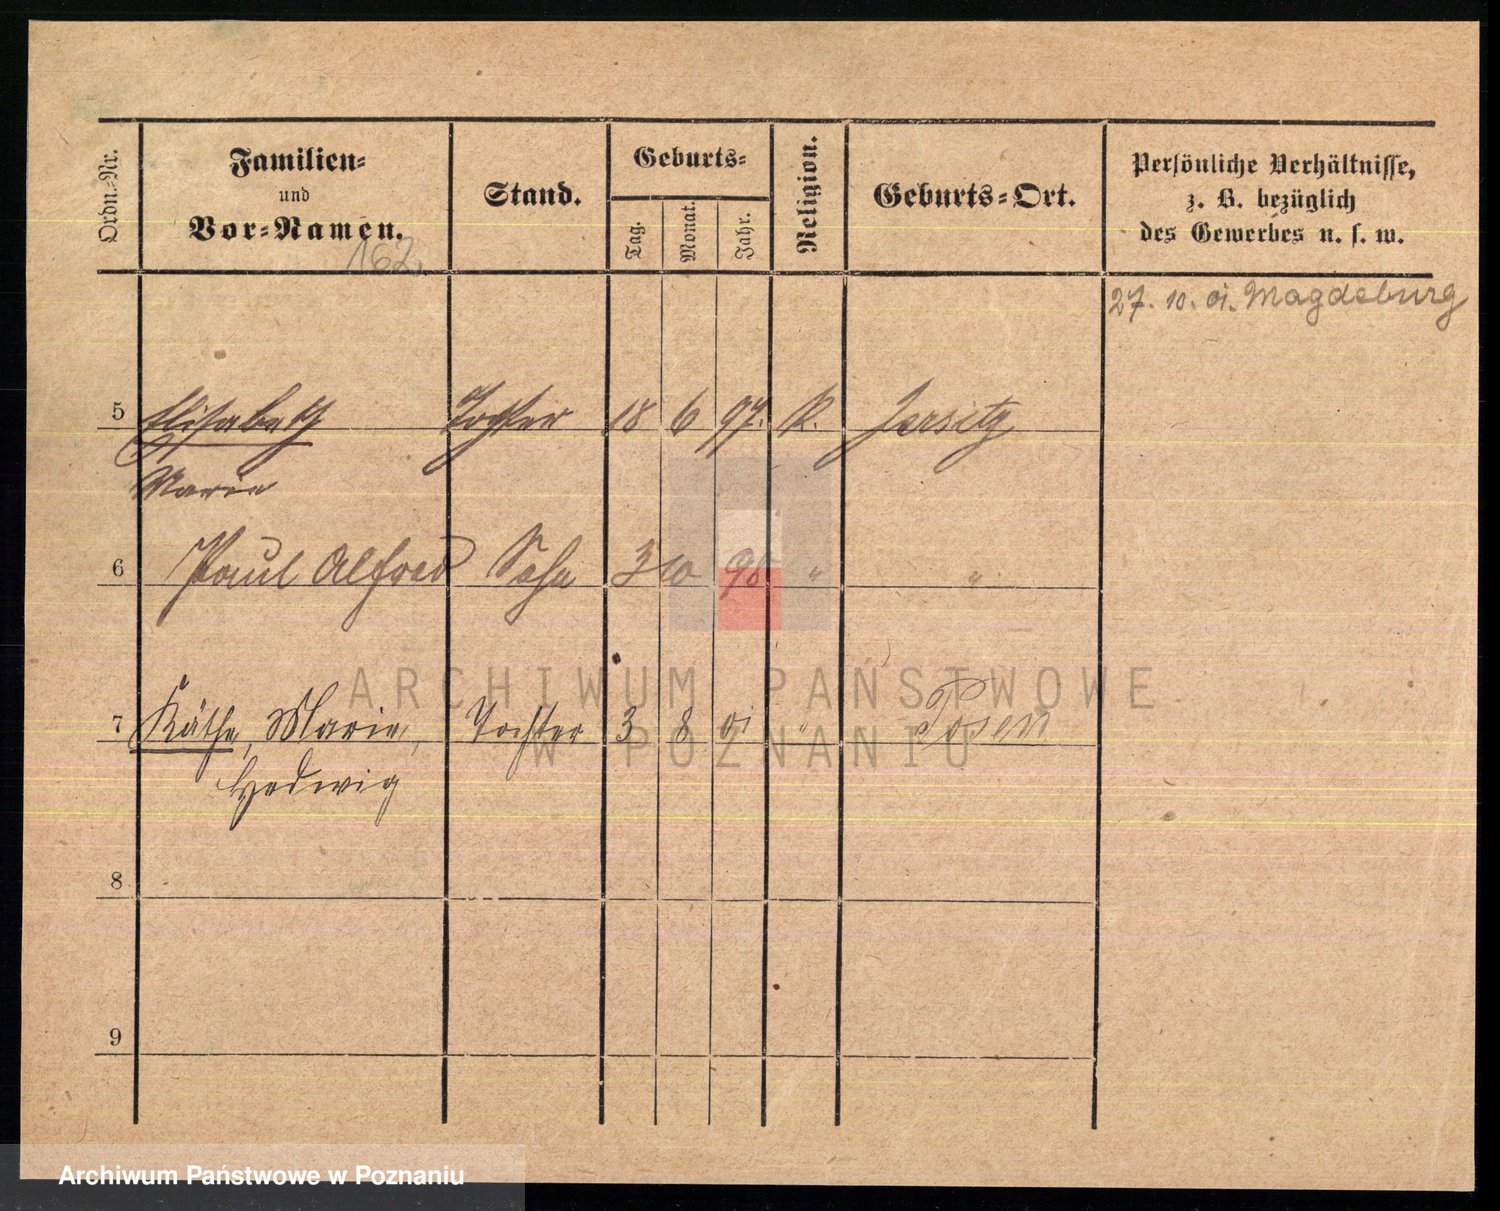 Ordn.-Nr.
Familien-
und
Vor-Namen.
162.
Stand.
Geburts-
Tag.
Monat.
Jahr.
Religion.
Geburts-Ort.
Persönliche Verhältnisse,
z. B. bezüglich
des Gewerbes u. s. w.
27. 10. 01. Magdeburg
5 Elisabeth Tochter 18 6 97. K. Jersitz
Marie
6 Paul Alfred Sohn 3 10 98 " "
7 Käthe, Marie, Tochter 3 8 01 " Posen
Hedwig
8
9
ARCHIWUM PAŃSTWOWE
W POZNANIU
Archiwum Państwowe w Poznaniu